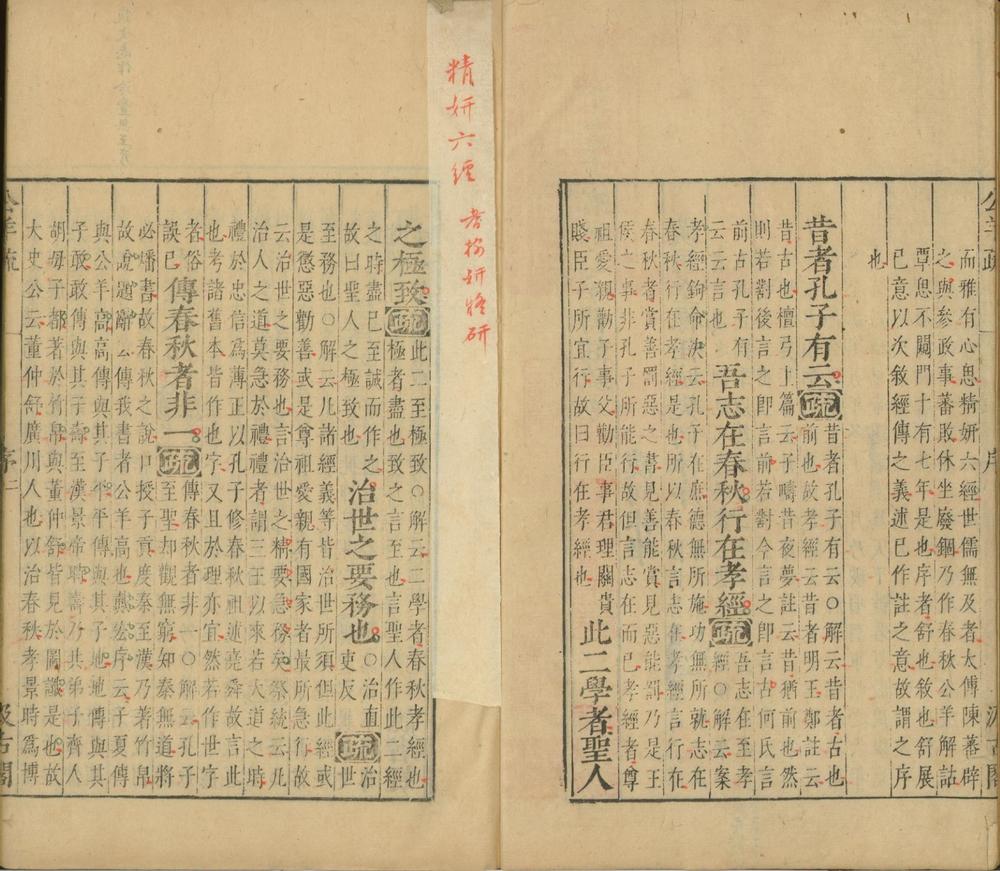 公羊疏
序
汲古閣
而雅有心思精妍六經世儒無及者太傅陳蕃辟
之與參政事蕃敗休坐廢錮乃作春秋公羊解詁
覃思不闚門十有七年是也序者舒也敘也舒展
已意以次敘經傳之義述已作註之意故謂之序
也
昔者孔子有云疏
昔者孔子有云○解云昔者古也
前也故孝經云昔者明王鄭註云
昔古也檀弓上篇云子疇昔夜夢註云昔猶前也然
則若對後言之即言前若對今言之即言古何氏言
前古孔子有
云云言也
吾志在春秋行在孝經疏
吾志在至孝
經○解云案
孝經鉤命決云孔子在庶德無所施功無所就志在
春秋行在孝經是也所以春秋言志在孝經言行在
春秋者賞善罰惡之書見善能賞見惡能罰乃是王
侯之事非孔子所能行故但言志在而已孝經者尊
祖愛親勸子事父勸臣事君理關貴
賤臣子所宜行故曰行在孝經也
此二學者聖人
精妍六經
之極致疏
此二至極致○解云二學者春秋孝經也
極者盡也致之言至也言聖人作此二經
之時盡已至誠而作之
故曰聖人之極致也
治世之要務也
○治直
吏反
疏
治
世
至務也○解云凡諸經義等皆治世所須但此經或
是懲惡勸善或是尊祖愛親有國家者最所急行故
云治世之要務也言治世之精要急務矣祭統云凡
治人之道莫急於禮禮者謂三王以來若大道之時
禮於忠信爲薄正以孔子修春秋祖述堯舜故言此
也考諸舊本皆作也字又且於理亦宜然若作世字
者俗
誤已
傳春秋者非一疏
傳春秋者非一○解云孔子
至聖却觀無窮知秦無道將
必燔書故春秋之說口授子貢度秦至漢乃著竹帛
故說題辭云傳我書者公羊高也戴宏序云子夏傳
與公羊高高傳與其子平平傳與其子地地傳與其
子敢敢傳與其子壽至漢景帝時壽乃共弟子齊人
胡毋子都著於竹帛與董仲舒皆見於圖讖是也故
大史公云董仲舒廣川人也以治春秋孝景時爲博
公羊疏
序
二
汲古閣